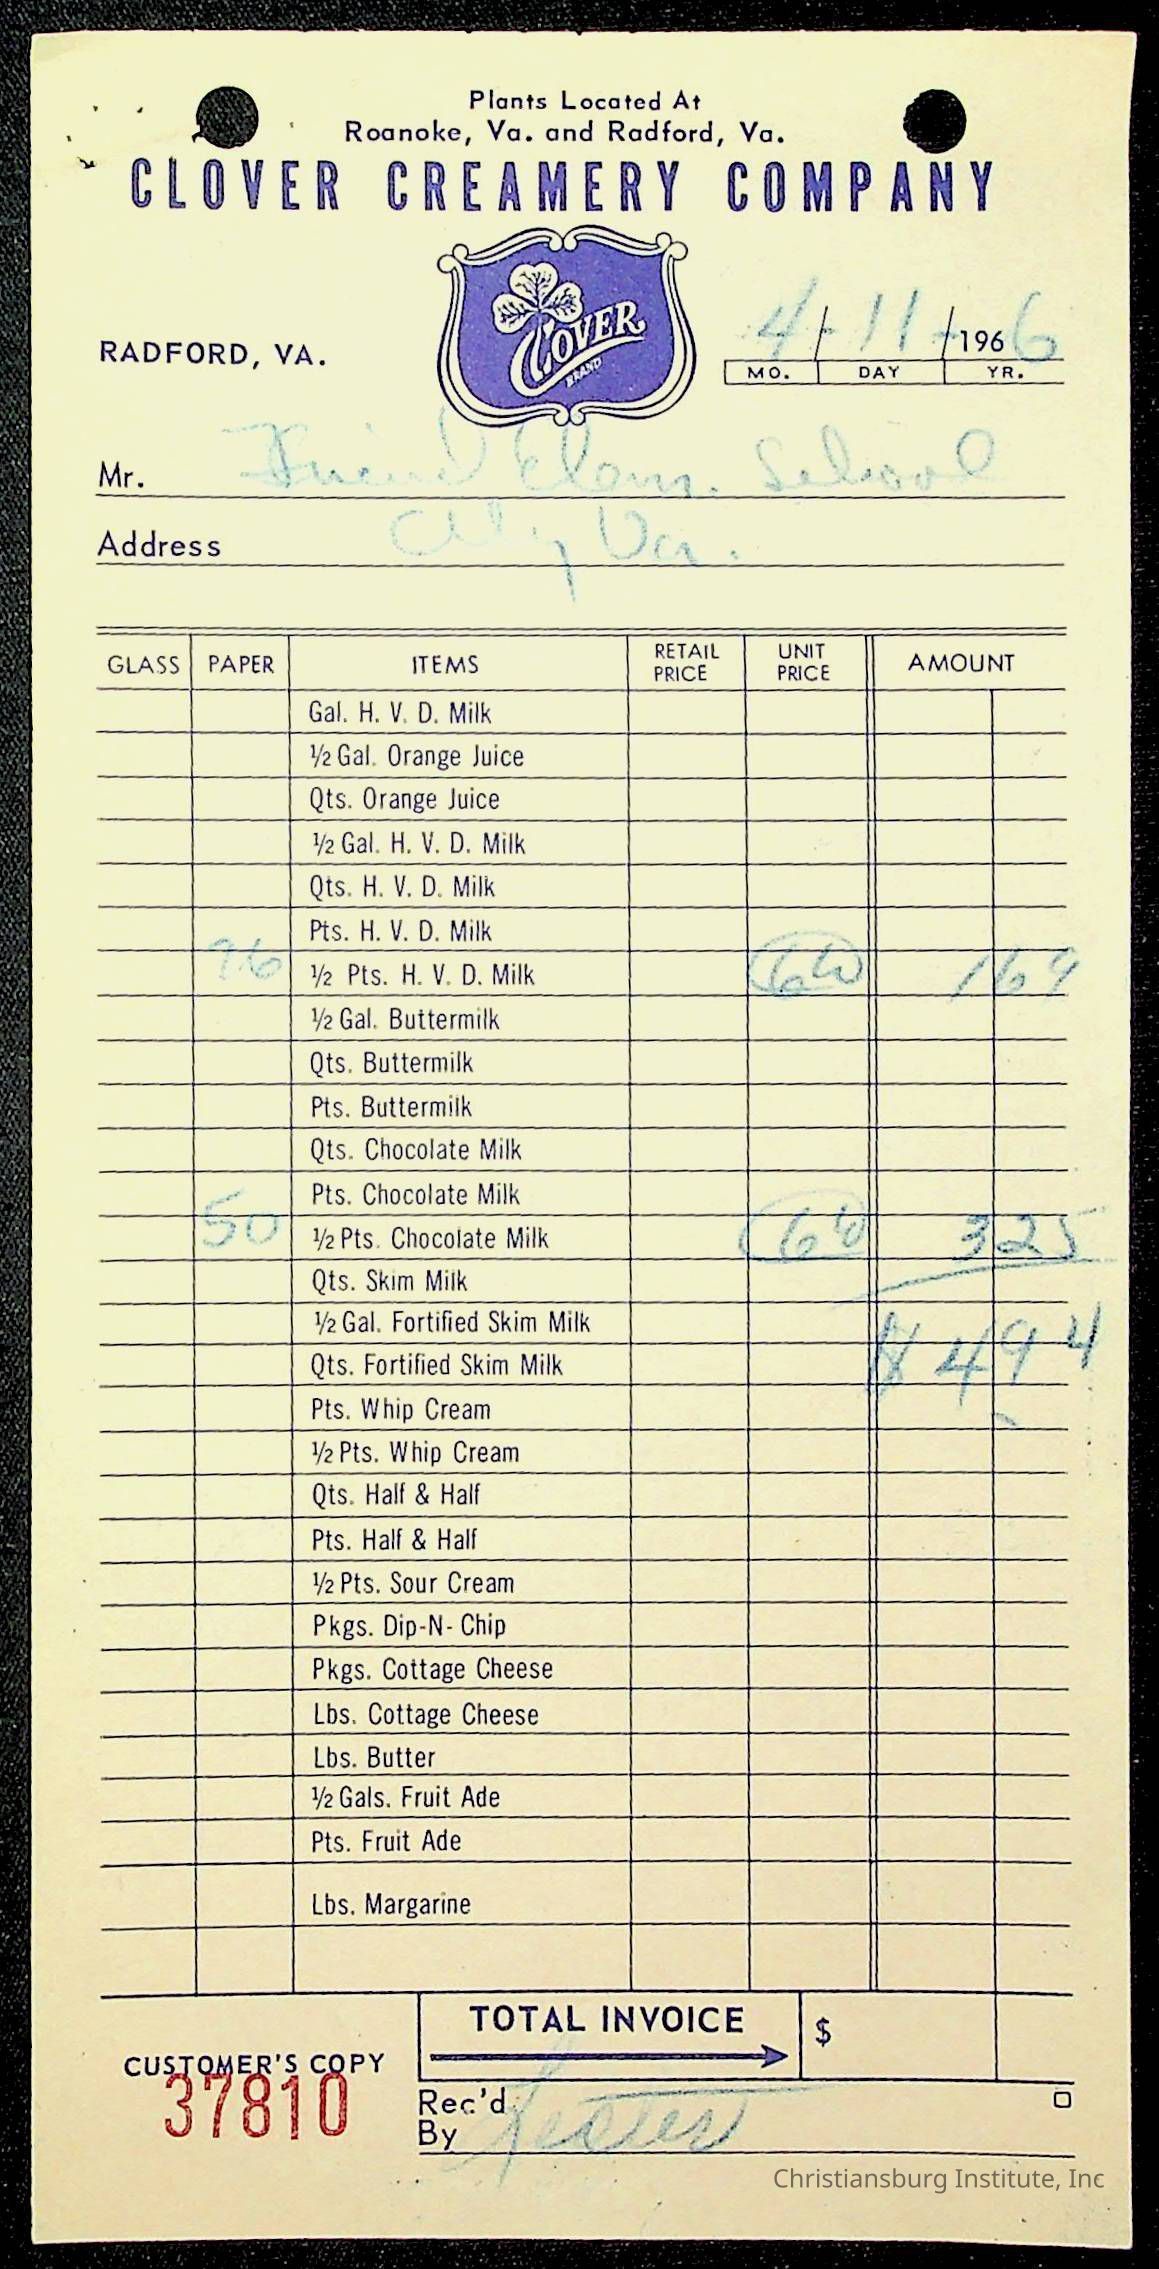 Plants Located At
Roanoke, Va. and Radford, Va.
CLOVER CREAMERY COMPANY
CLOVER
BRAND
RADFORD, VA.
4-11-1966
MO. DAY YR.
Mr. Friend Elem. School
Address City Va.
GLASS PAPER ITEMS RETAIL PRICE UNIT PRICE AMOUNT
Gal. H. V. D. Milk
½ Gal. Orange Juice
Qts. Orange Juice
½ Gal. H. V. D. Milk
Qts. H. V. D. Milk
Pts. H. V. D. Milk
½ Pts. H. V. D. Milk 169
½ Gal. Buttermilk
Qts. Buttermilk
Pts. Buttermilk
Qts. Chocolate Milk
Pts. Chocolate Milk
50 ½ Pts. Chocolate Milk 325
Qts. Skim Milk
½ Gal. Fortified Skim Milk
$ 494
Qts. Fortified Skim Milk
Pts. Whip Cream
½ Pts. Whip Cream
Qts. Half & Half
Pts. Half & Half
½ Pts. Sour Cream
Pkgs. Dip-N-Chip
Pkgs. Cottage Cheese
Lbs. Cottage Cheese
Lbs. Butter
½ Gals. Fruit Ade
Pts. Fruit Ade
Lbs. Margarine
TOTAL INVOICE $
CUSTOMER'S COPY
37810
Rec'd
By
Christiansburg Institute, Inc